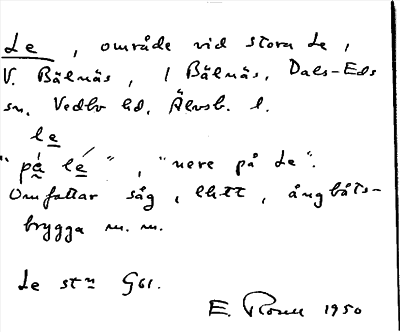 Le, område vid stora Le,
V. Bälnäs, i Bälnäs, Dals-Eds
sn. Vedbo hd. Älvsb. l.
le
"på lé", "nere på Le".
Omfattar såg, elett, ångbåts-
brygga m. m.
Le stn G61.
E. 1950